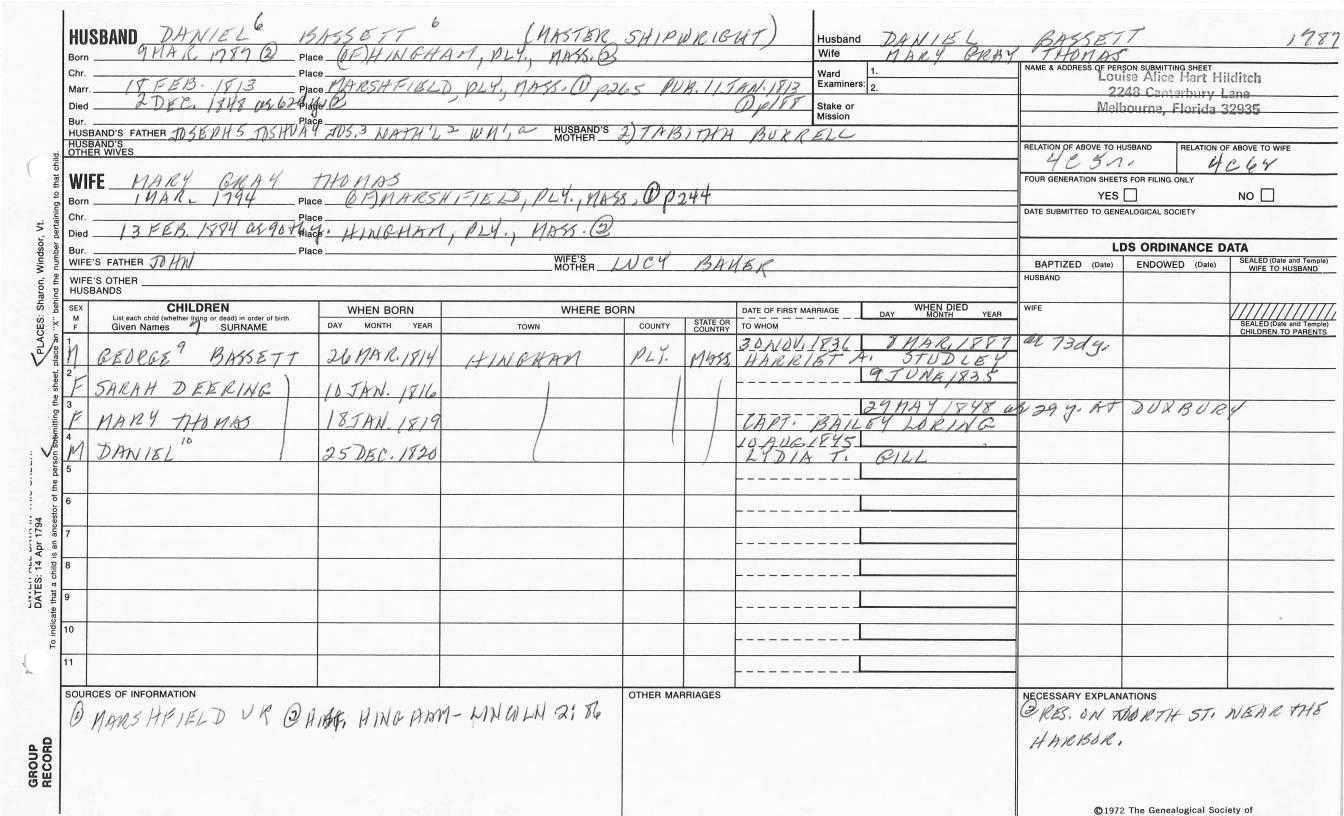 HUSBAND DANIEL 6 BASSETT 6 (MASTER SHIPWRIGHT)
Born 9 MAR. 1787 ② Place (OF) HINGHAM, PLY., MASS. ②
Chr. Place
Marr. 18 FEB. 1813 Place MARSHFIELD, PLY., MASS. ① p265 PUB. 11 JAN. 1813
Died 2 DEC. 1848 Place ① p188
Bur. Place
HUSBAND'S FATHER JOSEPH 5 JOSHUA 4 JOS. 3 NATH'L 2 HUSBAND'S MOTHER 2) TABITHA BURRELL
HUSBAND'S OTHER WIVES
Husband DANIEL BASSETT 1787
Wife MARY GRAY THOMAS
Ward Examiners: 1.
2.
Stake or Mission
NAME & ADDRESS OF PERSON SUBMITTING SHEET
Louise Alice Hart Hilditch
2248 Canterbury Lane
Melbourne, Florida 32935
RELATION OF ABOVE TO HUSBAND RELATION OF ABOVE TO WIFE
4C5r. 4C6r
FOUR GENERATION SHEETS FOR FILING ONLY
YES NO
DATE SUBMITTED TO GENEALOGICAL SOCIETY
WIFE MARY GRAY THOMAS
Born 1 MAR. 1794 Place (OF) MARSHFIELD, PLY., MASS. ① p244
Chr. Place
Died 13 FEB. 1884 ae 90th y. Place HINGHAM, PLY., MASS. ②
Bur. Place
WIFE'S FATHER JOHN WIFE'S MOTHER LUCY BAKER
WIFE'S OTHER HUSBANDS
LDS ORDINANCE DATA
BAPTIZED (Date) ENDOWED (Date) SEALED (Date and Temple) WIFE TO HUSBAND
HUSBAND
WIFE
SEALED (Date and Temple) CHILDREN TO PARENTS
SEX M F CHILDREN WHEN BORN WHERE BORN DATE OF FIRST MARRIAGE WHEN DIED
List each child (whether living or dead) in order of birth
Given Names SURNAME DAY MONTH YEAR TOWN COUNTY STATE OR COUNTRY TO WHOM DAY MONTH YEAR
1 M GEORGE 9 BASSETT 26 MAR. 1814 HINGHAM PLY. MASS 30 NOV. 1836 8 MAR. 1887 ae 73d y.
HARRIET A. STUDLEY
2 F SARAH DEERING 10 JAN. 1816 9 JUNE 1835
3 F MARY THOMAS 18 JAN. 1819 29 MAY 1848 ae 29 y. AT DUXBURY
CAPT. BAILEY LORING
4 M DANIEL 10 25 DEC. 1820 10 AUG. 1845
LYDIA T. GILL
5
6
7
8
9
10
11
SOURCES OF INFORMATION
① MARSHFIELD VR ② HIST. HINGHAM - LINCOLN 2: 86
OTHER MARRIAGES
NECESSARY EXPLANATIONS
② RES. ON NORTH ST. NEAR THE
HARBOR.
©1972 The Genealogical Society of
PLACES: Sharon, Windsor, Vt.
DATES: 14 Apr 1794
To indicate that a child is an ancestor of the person submitting the sheet, place an "X" behind the number pertaining to that child.
GROUP
RECORD